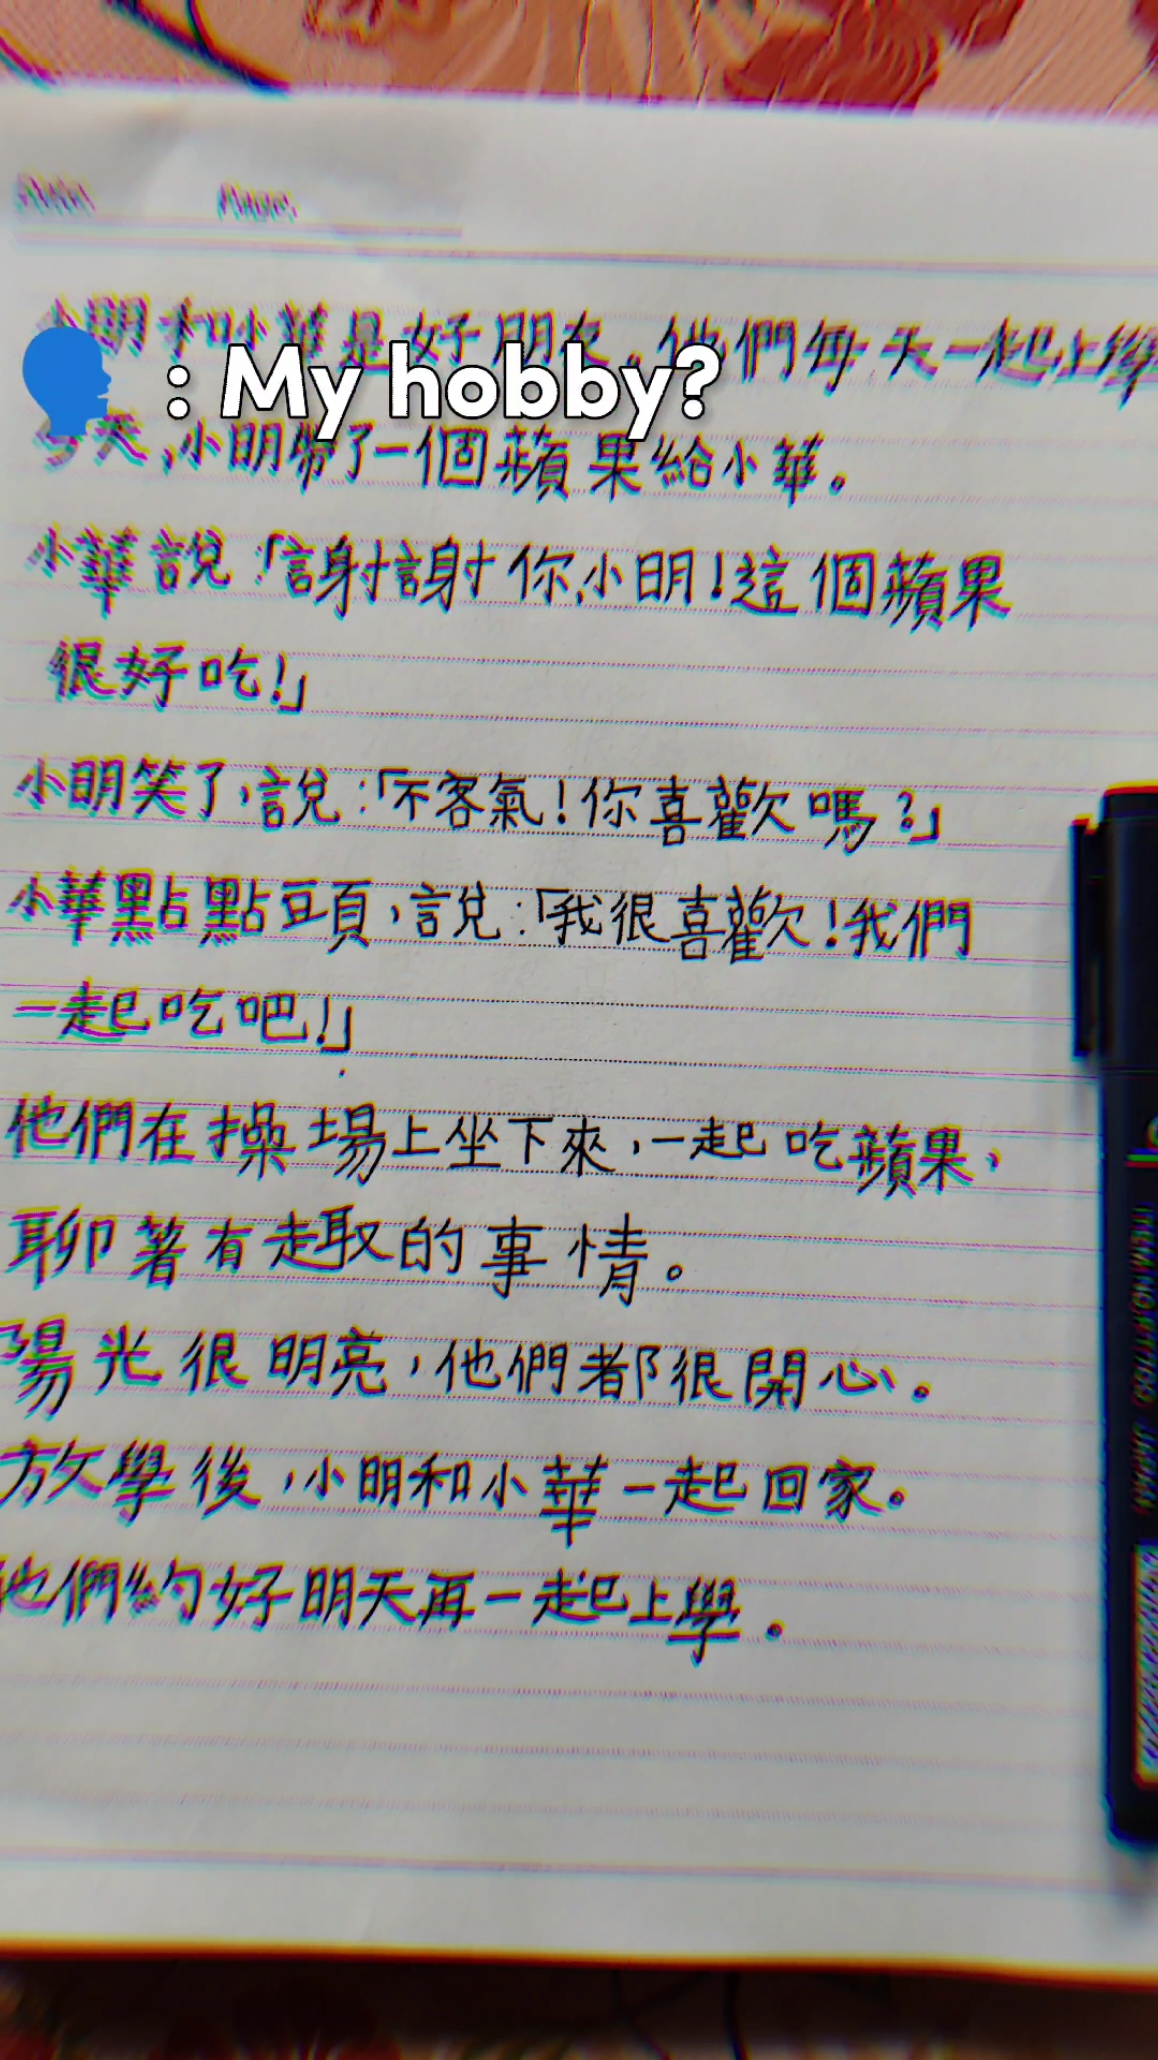 小明和小華是好朋友。他們每天一起上學
: My hobby?
今天,小明帶了一個蘋果給小華。
小華說「謝謝你,小明!這個蘋果
很好吃!」
小明笑了,說:「不客氣!你喜歡嗎?」
小華點點頭,說:「我很喜歡!我們
一起吃吧!」
他們在操場上坐下來,一起吃蘋果,
聊著有趣的事情。
陽光很明亮,他們都很開心。
放學後,小明和小華一起回家。
他們約好明天再一起上學。